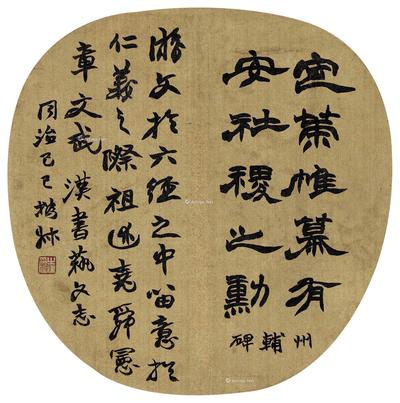 定策帷幕有
安社稷之勳
州輔碑
游文於六經之中留意於
仁義之際祖述堯舜憲
章文武 漢書藝文志
同治己巳 撝叔